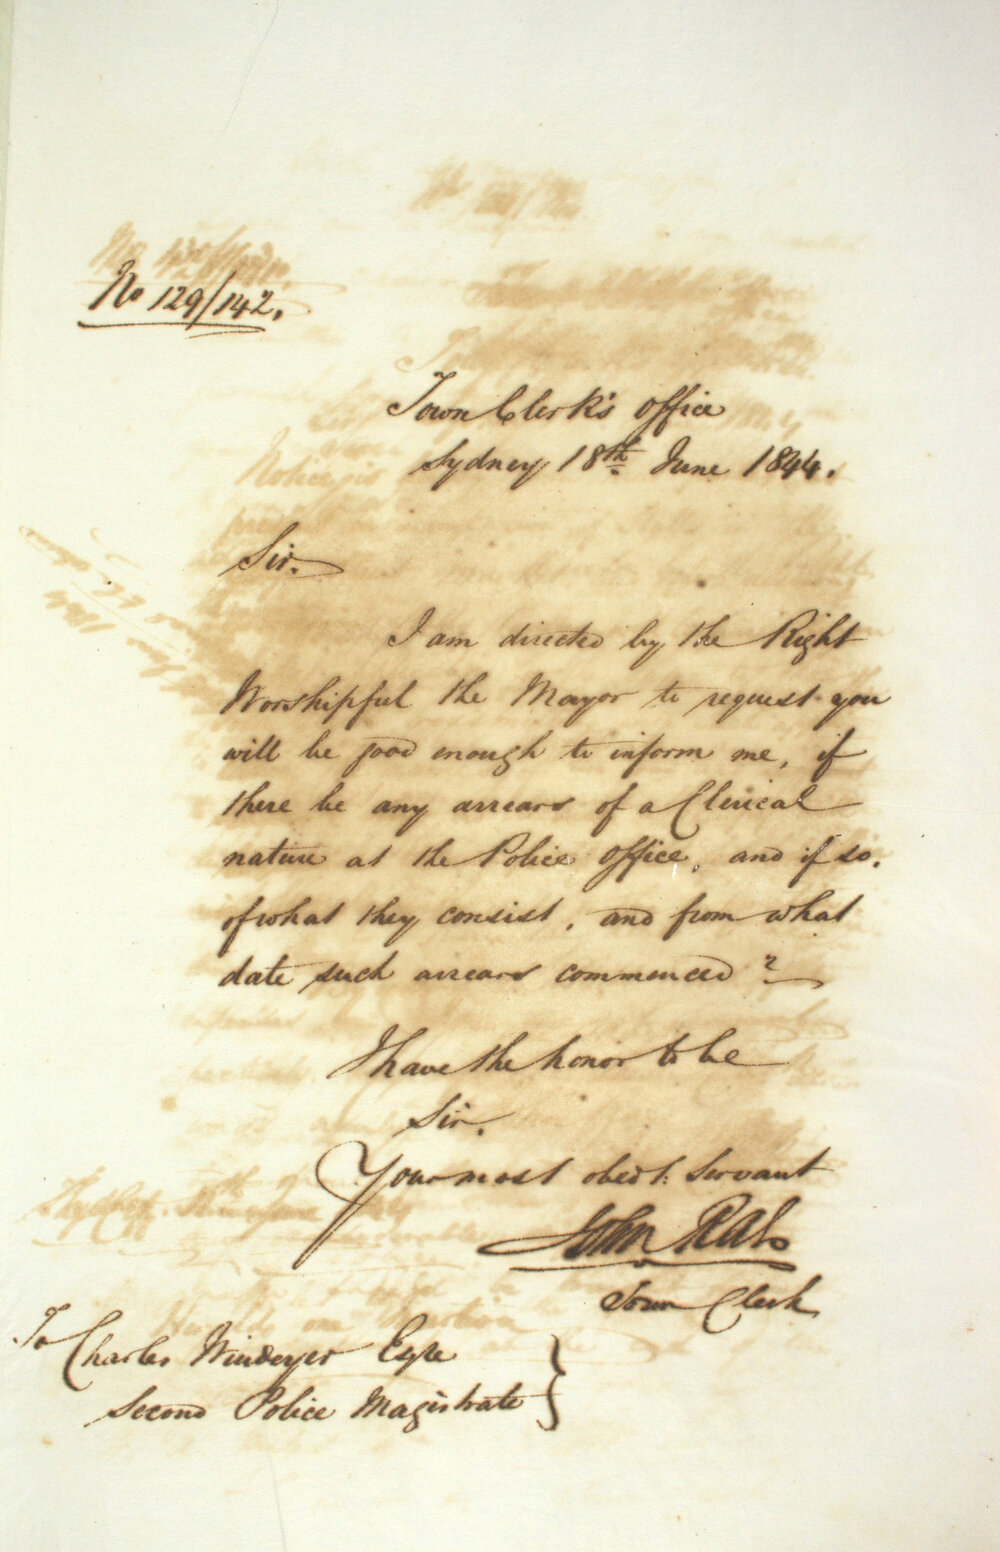 No 129/142.
Town Clerk's office
Sydney 18th June 1844.
Sir.
I am directed by the Right
Worshipful the Mayor to request you
will be good enough to inform me, if
there be any arrears of a Clerical
nature at the Police office, and if so.
of what they consist, and from what
date such arrears commenced?
I have the honor to be
Sir.
Your most obedt: Servant
John
Town Clerk
To Charles Windeyer Esqre
Second Police Magistrate